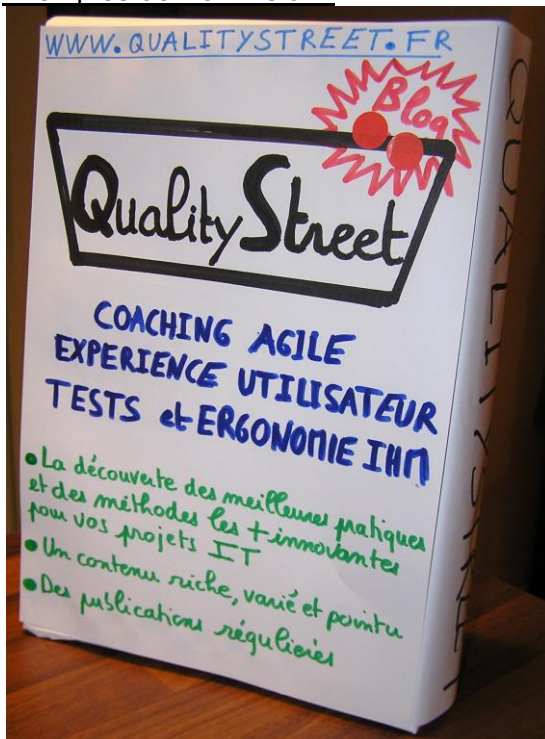 WWW.QUALITYSTREET.FR
Blog
Quality Street
COACHING AGILE
EXPERIENCE UTILISATEUR
TESTS et ERGONOMIE IHM
• La découverte des meilleures pratiques
et des méthodes les + innovantes
pour vos projets IT
• Un contenu riche, varié et pointu
• Des publications régulières
QUALITYSTREET